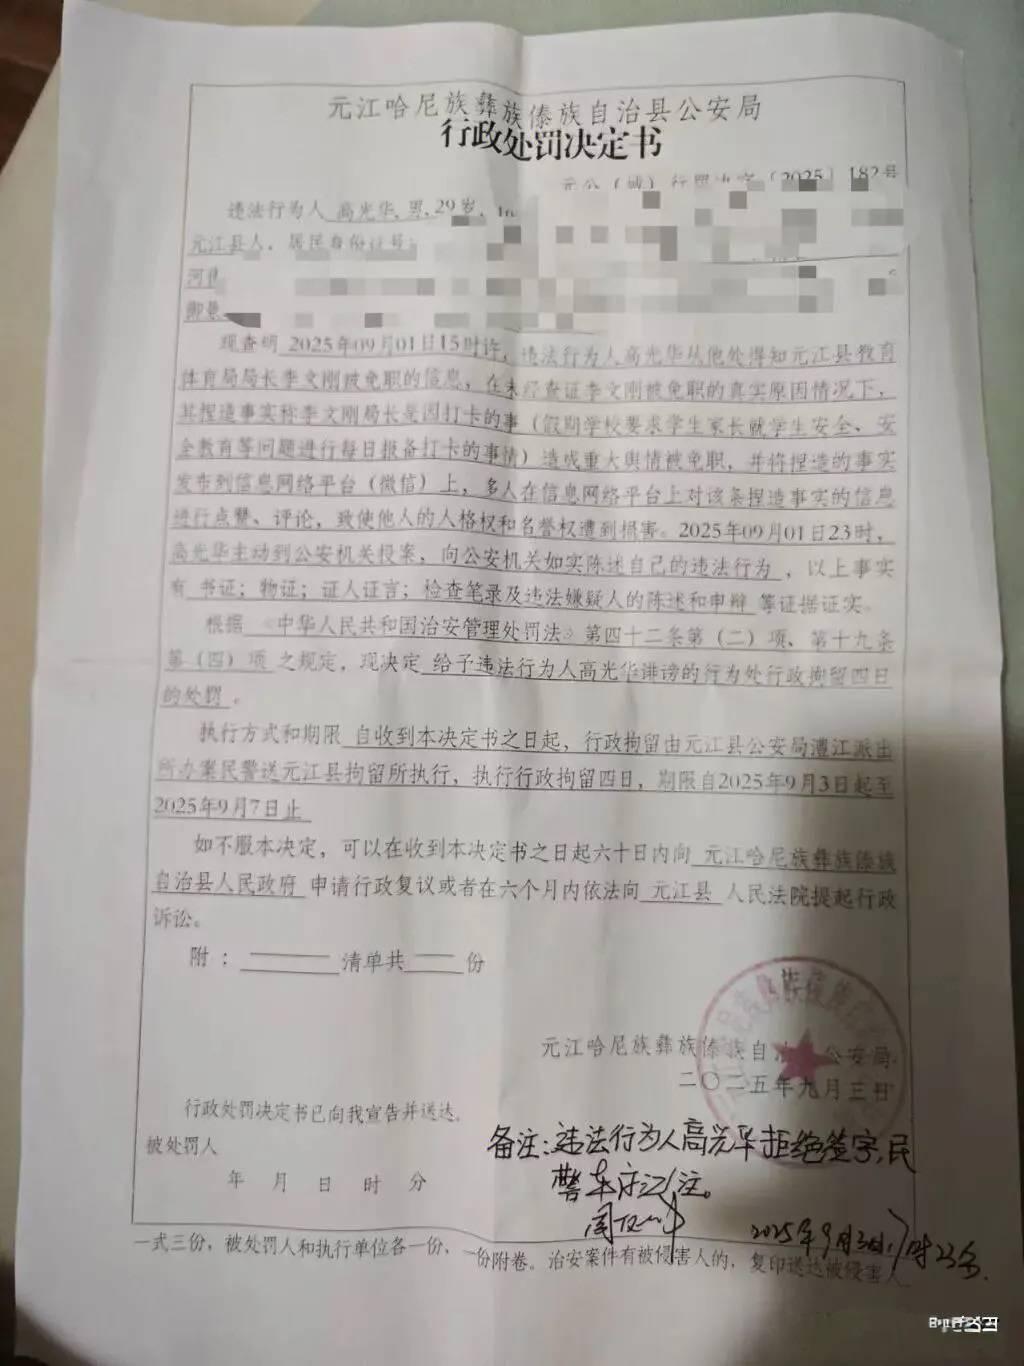 元江哈尼族彝族傣族自治县公安局
行政处罚决定书
元公(城)行罚决字〔2025〕182号
违法行为人 高光华,男,29岁,
元江县人,居民身份证号:
现查明 2025年09月01日15时许,违法行为人高光华从他处得知元江县教育
体育局局长李文刚被免职的信息,在未经查证李文刚被免职的真实原因情况下,
其捏造事实称李文刚局长是因打卡的事(假期学校要求学生家长就学生安全、安
全教育等问题进行每日报备打卡的事情)造成重大舆情被免职,并将捏造的事实
发布到信息网络平台(微信)上,多人在信息网络平台上对该条捏造事实的信息
进行点赞、评论,致使他人的人格权和名誉权遭到损害。2025年09月01日23时,
高光华主动到公安机关投案,向公安机关如实陈述自己的违法行为,以上事实
有 书证;物证;证人证言;检查笔录及违法嫌疑人的陈述和申辩 等证据证实。
根据 《中华人民共和国治安管理处罚法》第四十二条第(二)项、第十九条
第(四)项 之规定,现决定 给予违法行为人高光华诽谤的行为处行政拘留四日
的处罚。
执行方式和期限 自收到本决定书之日起,行政拘留由元江县公安局澧江派出
所办案民警送元江县拘留所执行,执行行政拘留四日,期限自2025年9月3日起至
2025年9月7日止
如不服本决定,可以在收到本决定书之日起六十日内向 元江哈尼族彝族傣族
自治县人民政府 申请行政复议或者在六个月内依法向 元江县 人民法院提起行政
诉讼。
附: 清单共 份
元江哈尼族彝族傣族自治县公安局
二〇二五年九月三日
行政处罚决定书已向我宣告并送达。
被处罚人
年 月 日 时 分
备注:违法行为人高光华拒绝签字,民
警
2025年9月3日
一式三份,被处罚人和执行单位各一份,一份附卷。治安案件有被侵害人的,复印送达被侵害人